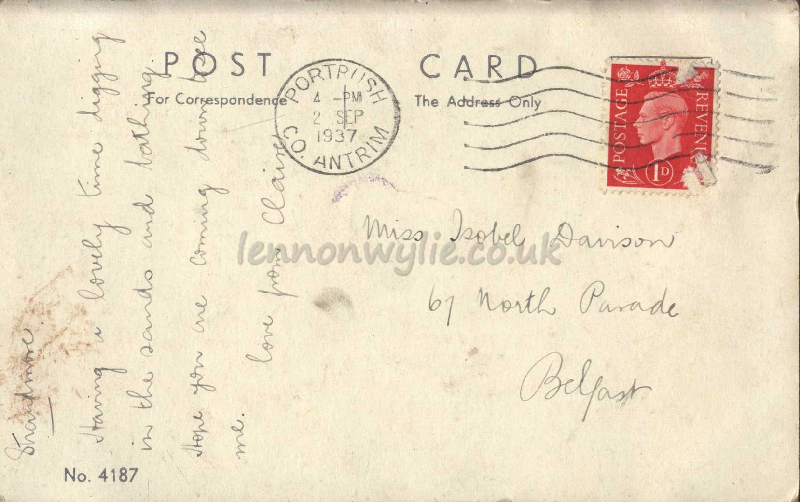 POST CARD
For Correspondence
The Address Only
PORTRUSH
4 - PM
2 SEP
1937
CO. ANTRIM
POSTAGE
REVENUE
1D
Strandmore.
Having a lovely time digging
in the sands and bathing.
Hope you are coming down to see
me.
love from Claire
Miss Isobel Davison
67 North Parade
Belfast
lennonwylie.co.uk
No. 4187